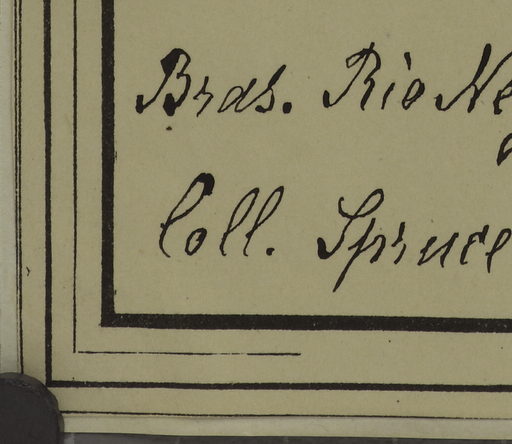 Bras. Rio Ne
Coll. Spruce